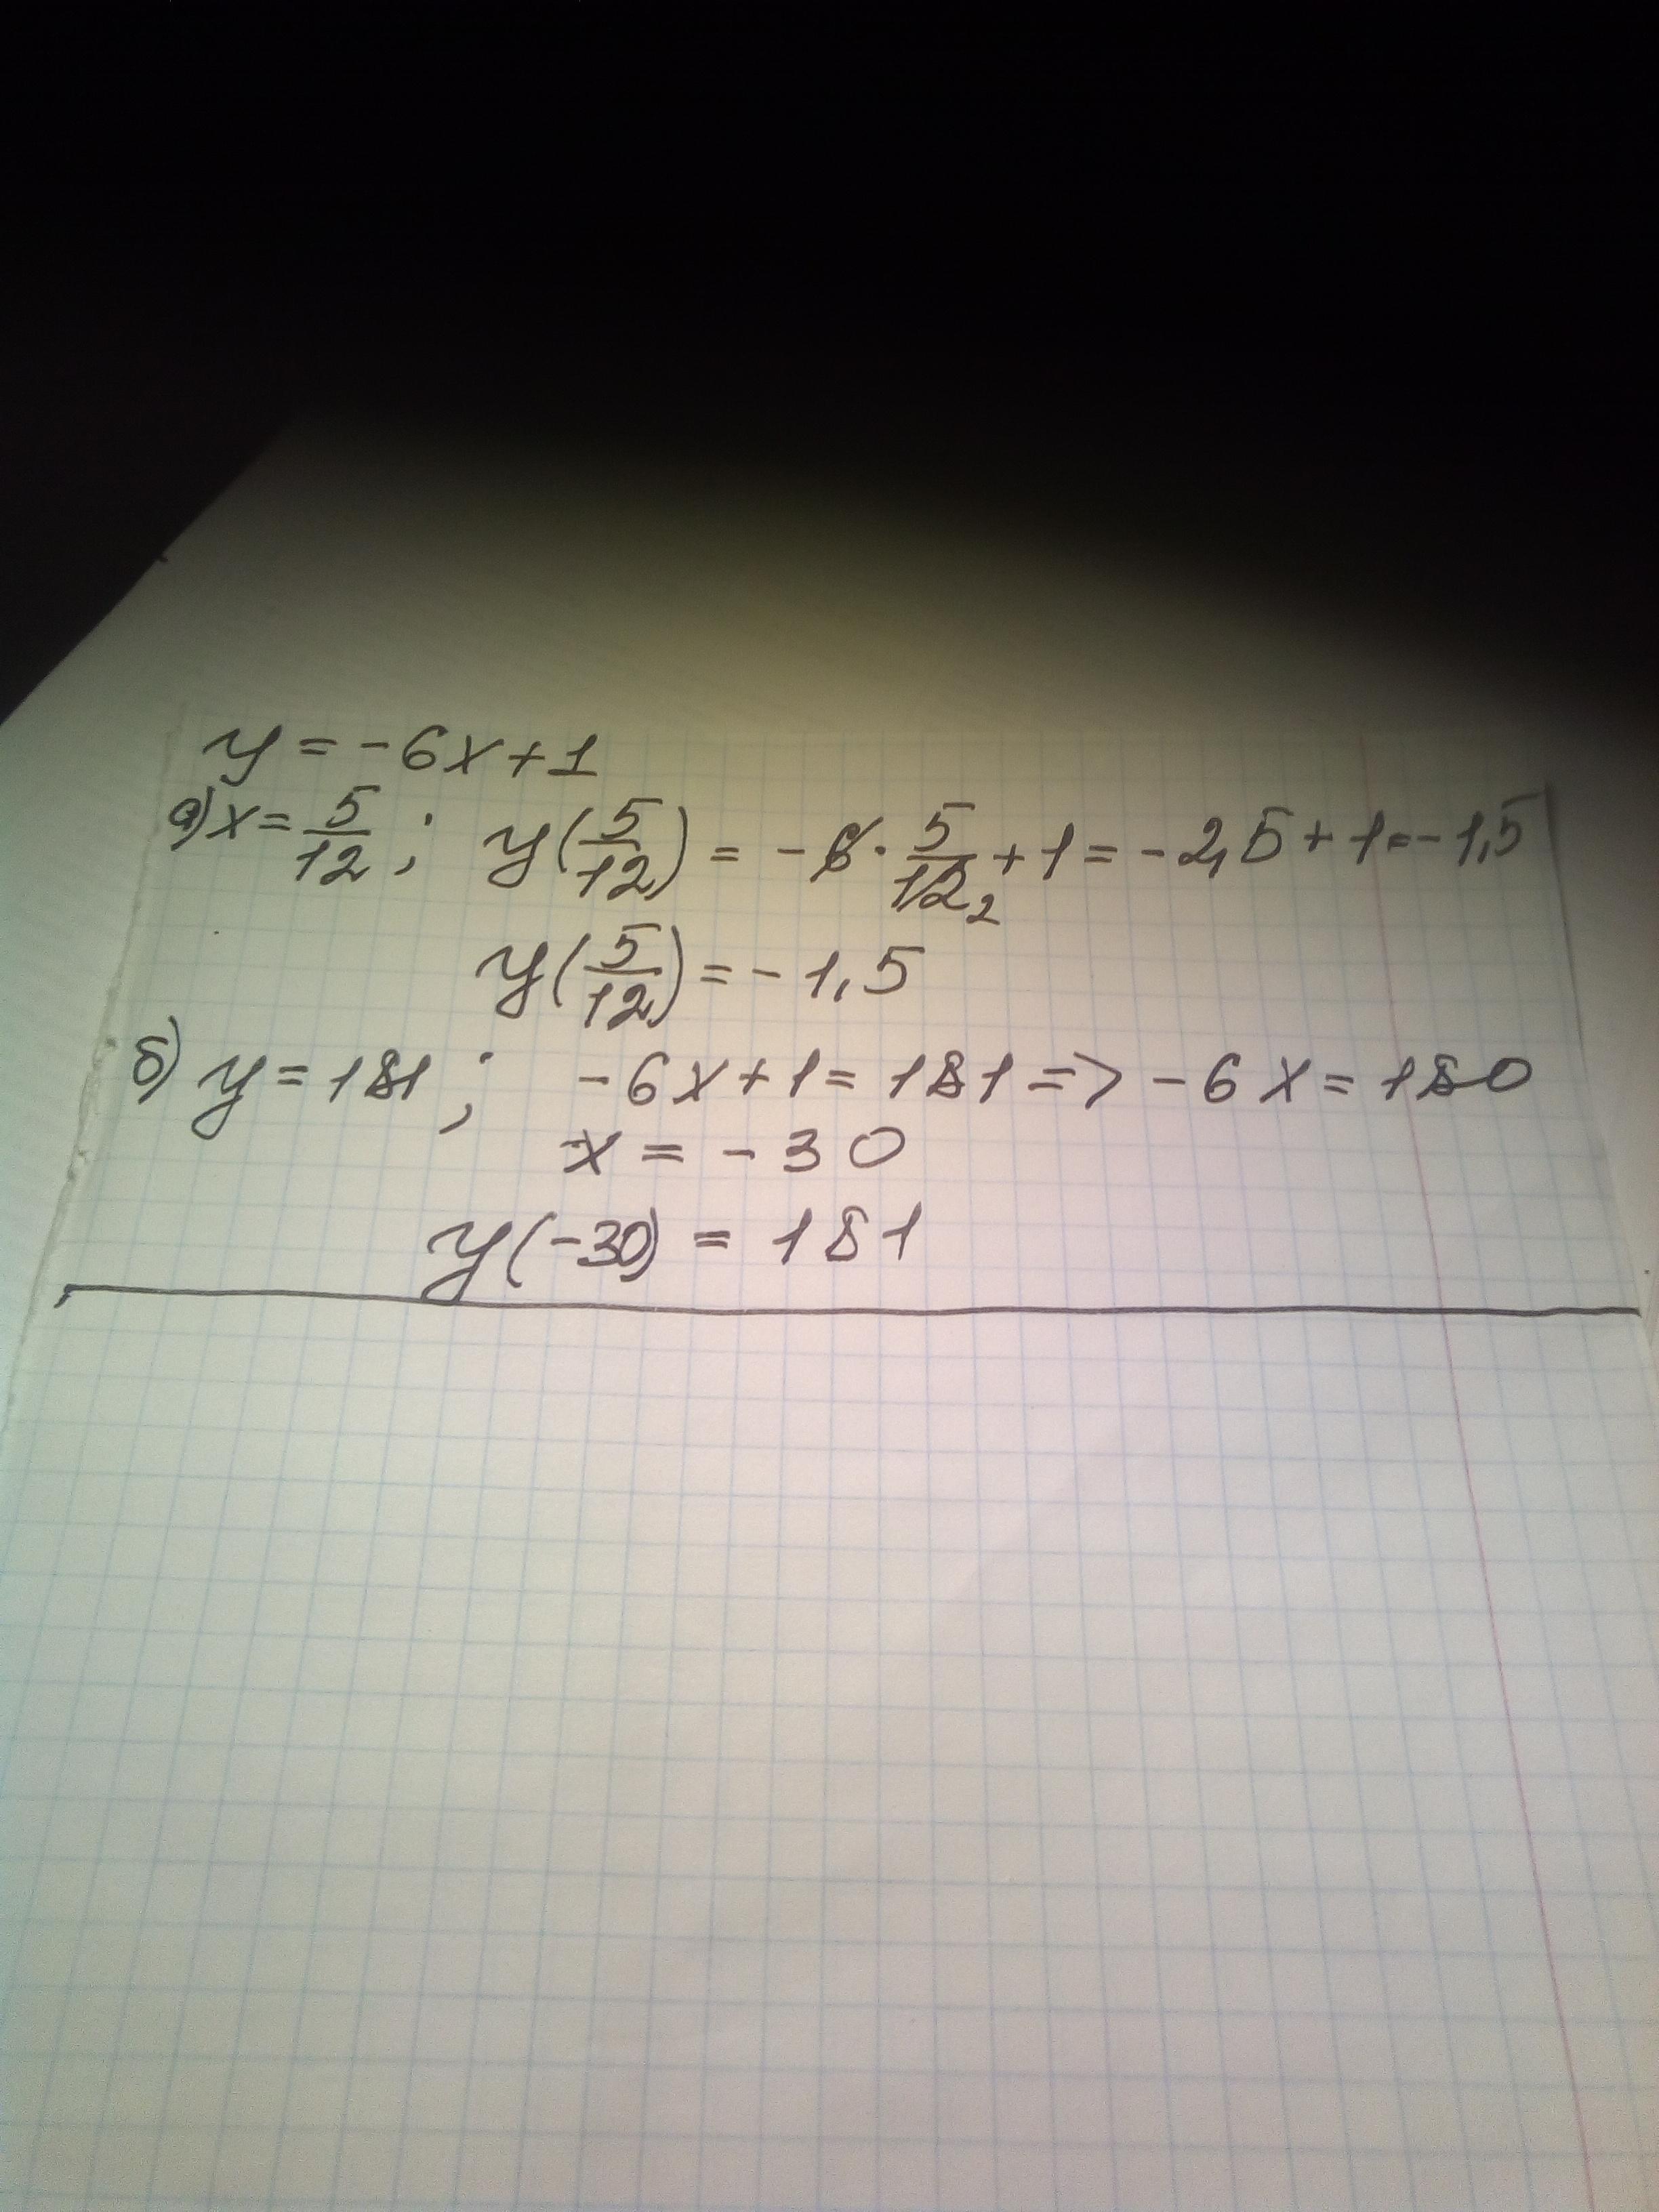 y = -6x + 1
а) x = 5/12 ; y(5/12) = -6 · 5/12 2 + 1 = -2,5 + 1 = -1,5
y(5/12) = -1,5
б) y = 181 ; -6x + 1 = 181 => -6x = 180
x = -30
y(-30) = 181